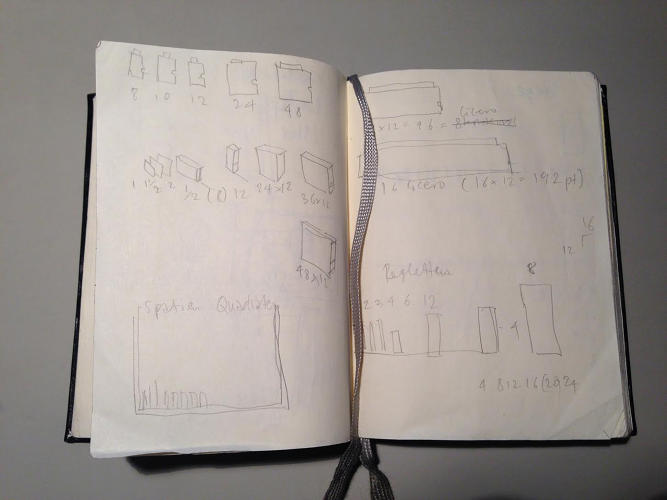 8 10 12 24 48
1 1½ 2 1/2 (8) 12 24×12 36×12
48×12
Spatien Quadraten
×12 = 96 =
Cicero
16 Cicero (16×12 = 192 pt)
16
12
Regletten 8
2 3 4 6 12
4
4 8 12 16 (20) 24